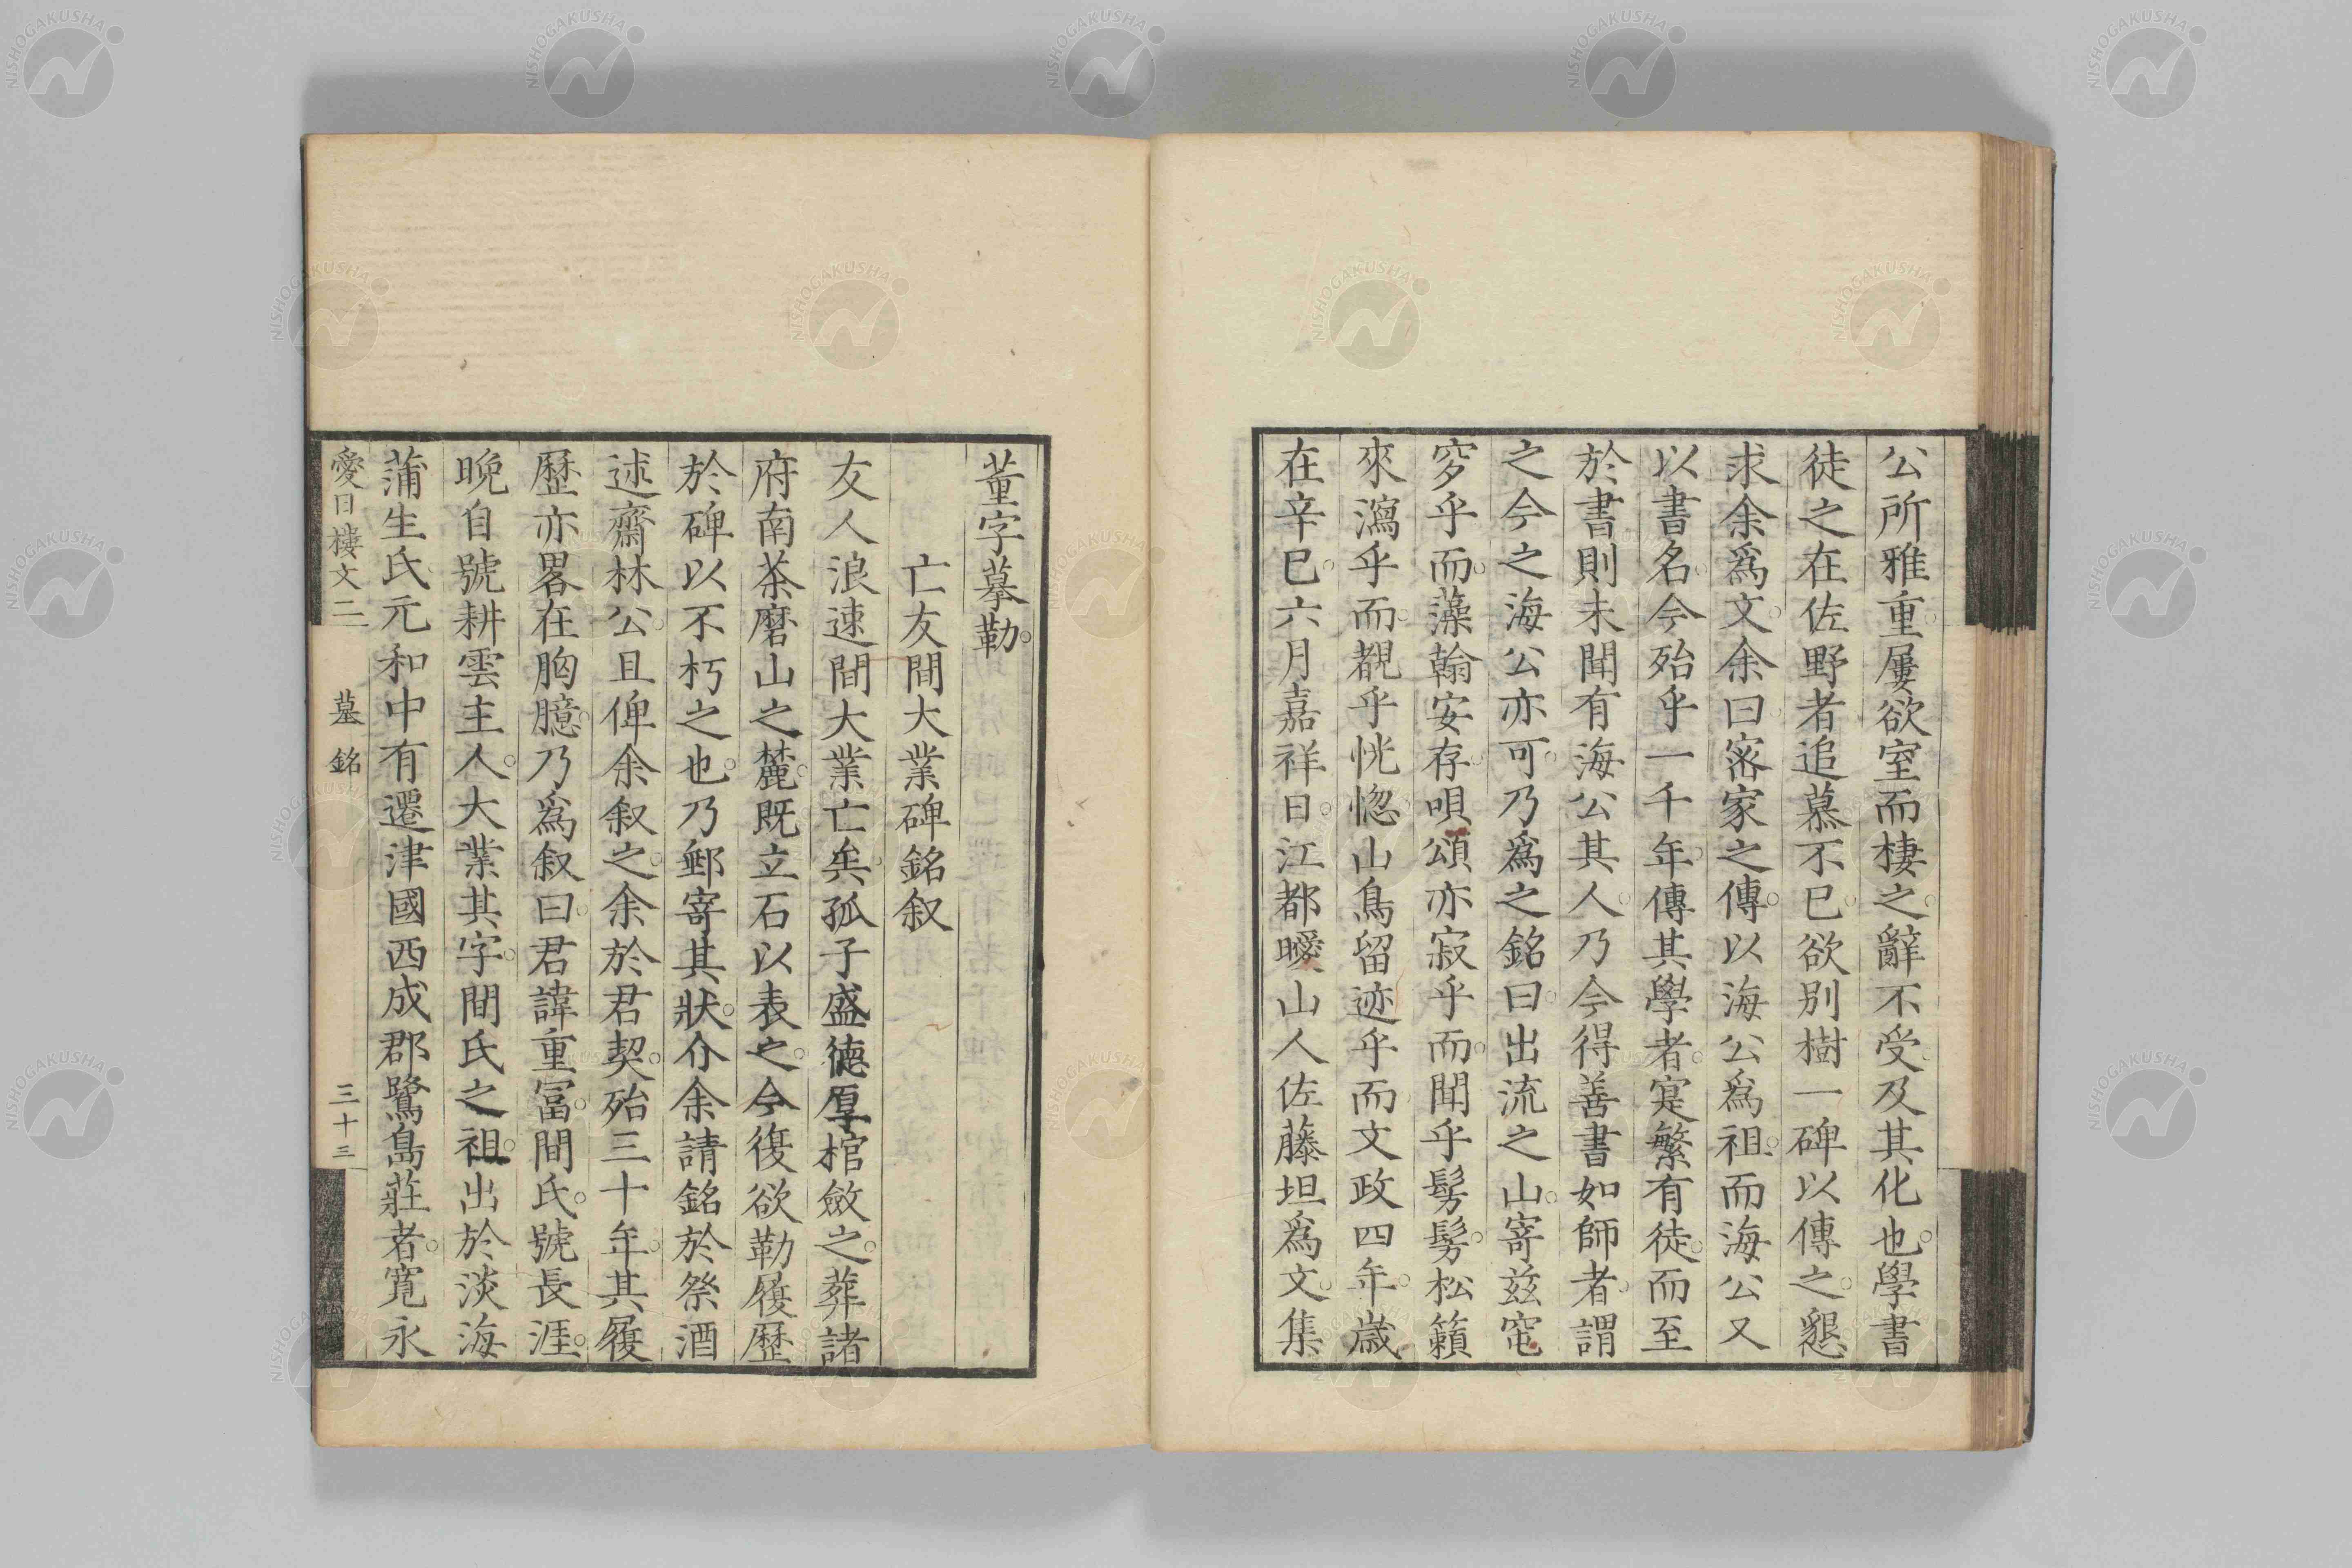 公所雅重屢欲室而棲之辭不受及其化也學書
徒之在佐野者追慕不已欲別樹一碑以傳之懇
求余爲文余曰宻家之傳以海公爲祖而海公又
以書名今殆乎一千年傳其學者寔繁有徒而至
於書則未聞有海公其人乃今得善書如師者謂
之今之海公亦可乃爲之銘曰出流之山寄兹窀
穸乎而藻翰安存唄頌亦寂乎而聞乎髣髣松籟
來瀉乎而覩乎恍惚山鳥留迹乎而文政四年歲
在辛巳六月嘉祥日江都曖山人佐藤坦爲文集
董字摹勒
亡友間大業碑銘叙
友人浪速間大業亡矣孤子盛德厚棺斂之葬諸
府南茶磨山之麓既立石以表之今復欲勒履歷
於碑以不朽之也乃郵寄其狀介余請銘於祭酒
述齋林公且俾余叙之余於君契殆三十年其履
歷亦畧在胸臆乃爲叙曰君諱重富間氏號長涯
晩自號耕雲主人大業其字間氏之祖出於淡海
蒲生氏元和中有遷津國西成郡鷺島莊者寬永
愛日樓文二 墓銘 三十三
NISHOGAKUSHA